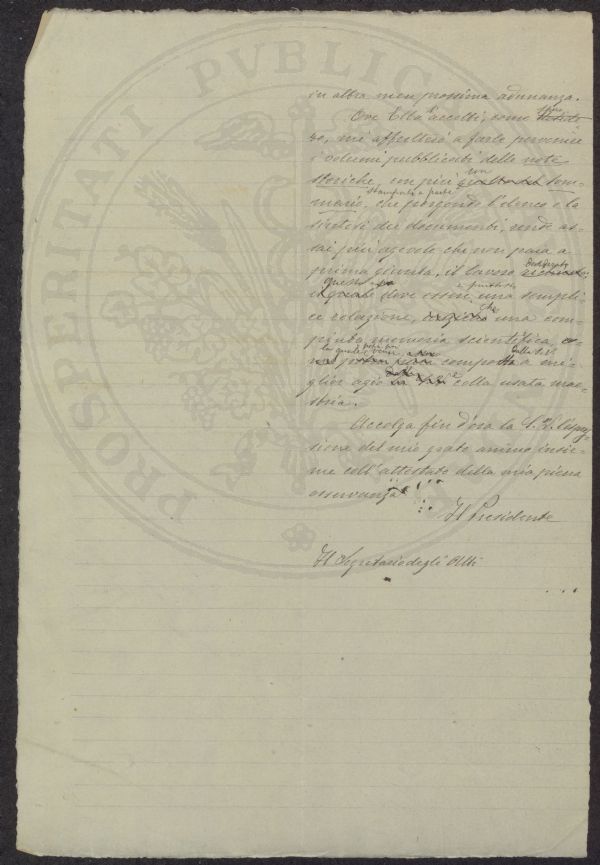 PROSPERITATI PVBLICAE
in altra men prossima adunanza.
Ove Ella accetti, come spero
mi affretterò a farle pervenire
i volumi pubblicati delle note
storiche, con più un som-
stampato a parte
mario, che porgendo l'elenco e la
sintesi dei documenti, rende as-
sai più agevole che non paia a
desiderato
prima giunta, il lavoro
questo
il quale deve essere una sempli-
ce relazione, che una com-
piuta memoria scientifica,
la quale
dalla S.V.
composta a mi-
glior agio colla usata mae-
stria.
Accolga fin d'ora la S.V. l'espres-
sione del mio grato animo insie-
me coll'attestato della mia piena
osservanza
Il Presidente
Il Segretario degli Atti